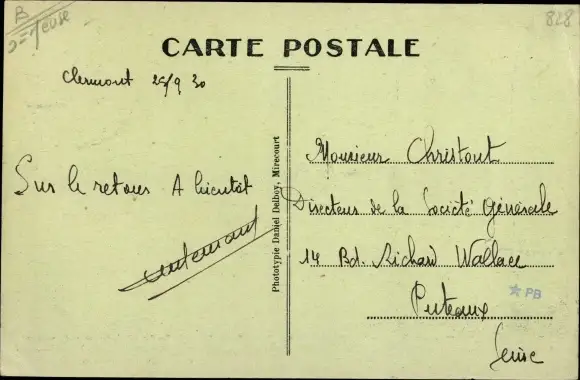 B
Meuse
828
CARTE POSTALE
Clermont 25/9 30
Sur le retour A bientot
Phototypie Daniel Delboy, Mirecourt
Monsieur Christout
Directeur de la Société Générale
14 Bd. Richard Wallace
Puteaux
PB
Seine